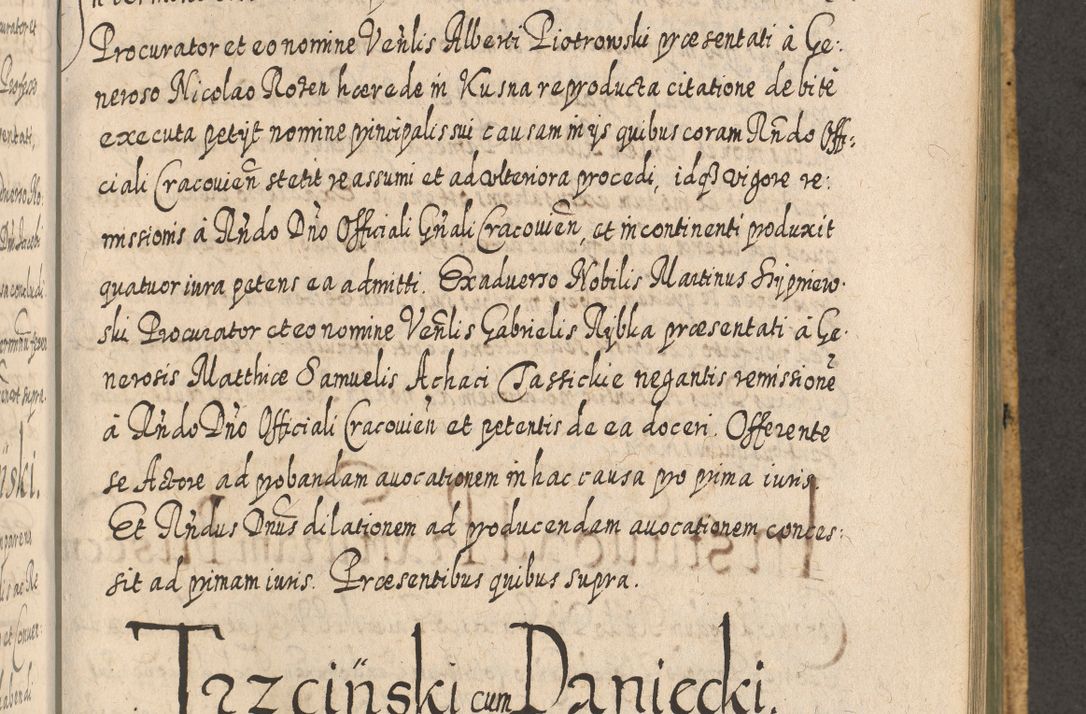 Procurator et eo nomine Veñlis Alberti Piotrowski præsentati à Ge:
neroso Nicolao Rozen hærede in Kusna reproducta citatione debitè
executa petijt nomine principalis sui causam in ijs quibus coram Rñdo Offi:
ciali Cracovieñ stetit reassumi et ad ulteriora procedi, idqȝ vigore re:
missionis à Rñdo Dño Officiali Gñali Cracovieñ, et in continenti produxit
quatuor iura petens ea admitti. Exadverso Nobilis Martinus
ski Procurator et eo nomine Veñlis Gabrielis Rybka præsentati à Ge:
nerosis Matthiæ Samuelis Achaci Tassickie negantis remissionē
à Rñdo Dño Officiali Cracovieñ et petentis de ea doceri. Offerente
se Actore ad probandam avocationem in hac causa pro prima iuris
Et Rñdus Dnus dilationem ad producendam avocationem conces:
sit ad primam iuris. Præsentibus quibus supra.
Trzciński cum Daniecki.